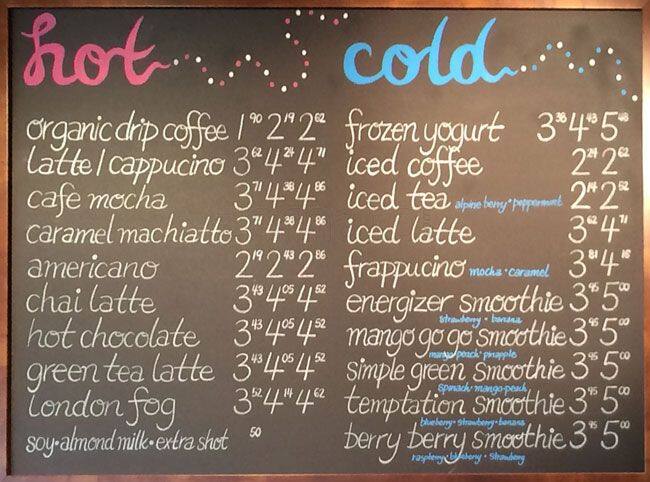 hot
organic drip coffee 1 90 2 19 2 62
latte / cappucino 3 62 4 24 4 71
cafe mocha 3 71 4 38 4 86
caramel machiatto 3 71 4 38 4 86
americano 2 19 2 43 2 86
chai latte 3 43 4 05 4 52
hot chocolate 3 43 4 05 4 52
green tea latte 3 43 4 05 4 52
london fog 3 52 4 14 4 62
soy • almond milk • extra shot 50
cold
frozen yogurt 3 38 4 43 5 48
iced coffee 2 24 2 62
iced tea alpine berry • peppermint 2 14 2 52
iced latte 3 62 4 71
frappucino mocha • caramel 3 81 4
energizer smoothie 3 95 5 00
strawberry • banana
mango go go smoothie 3 95 5 00
mango • peach • pineapple
simple green smoothie 3 95 5 00
spinach • mango • peach
temptation smoothie 3 95 5 00
blueberry • strawberry • banana
berry berry smoothie 3 95 5 00
raspberry • blueberry •